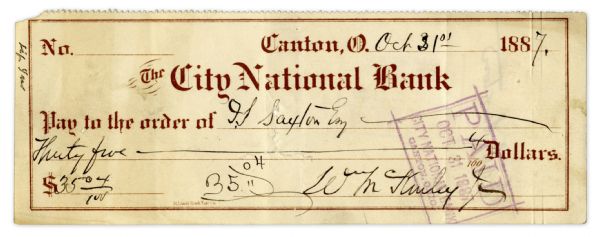 No. Canton, O. Oct 31st 1887.
The City National Bank
Pay to the order of I. S. Saxton Esq
Thirty five 4/100 Dollars.
$35 04/100 35.04 Wm McKinley Jr
PAID
OCT 31 188
CITY NATIONAL BANK